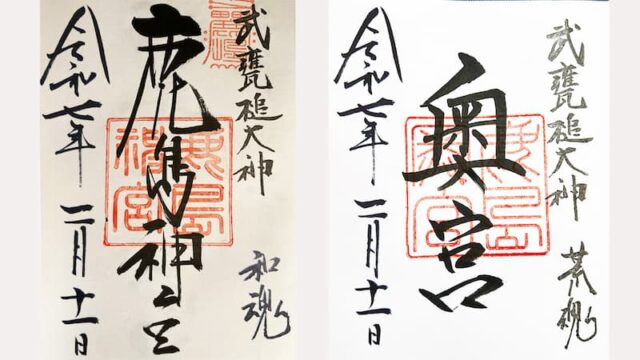 武甕槌大神
和魂
鹿島神宮
鹿島
神宮
令和七年
二月十一日
武甕槌大神
荒魂
奥宮
鹿島
神宮
令和七年
二月十一日